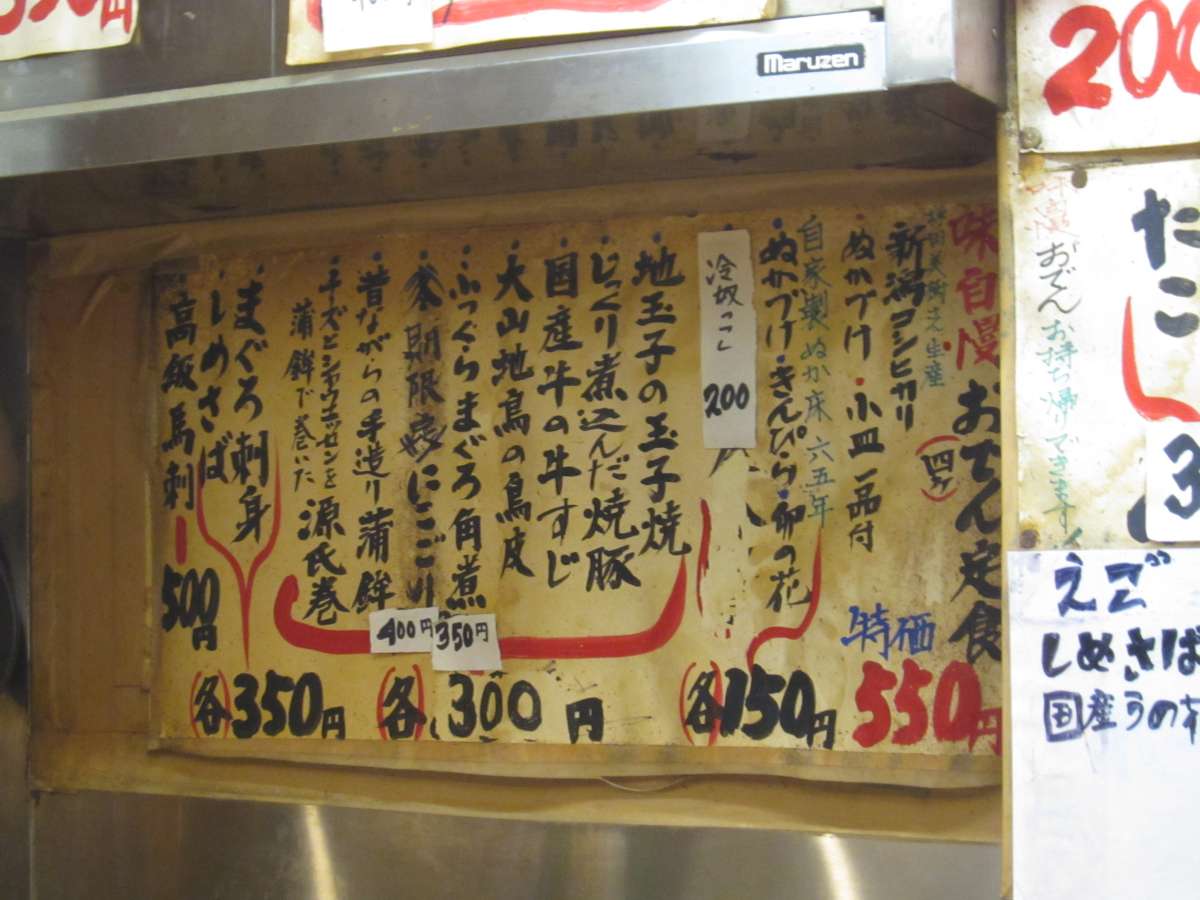 Maruzen
200
味自慢
おでん
お持ち帰りできます
たこ
3
えご
しめさば
国産うの花
味自慢おでん定食
(四ケ)
特価
550円
新潟コシヒカリ
ぬかづけ・小皿一品付
自家製ぬか床六五年
・ぬかづけ・きんぴら・卯の花
(各)150円
冷奴
200
・地玉子の玉子焼
・じっくり煮込んだ焼豚
・国産牛の牛すじ
・大山地鳥の鳥皮
・ふっくらまぐろ角煮
350円
期限
にこごり
400円
・昔ながらの手造り蒲鉾
蒲鉾で巻いた源氏巻
(各)300円
・まぐろ刺身
・しめさば
(各)350円
・高飯馬刺
500円